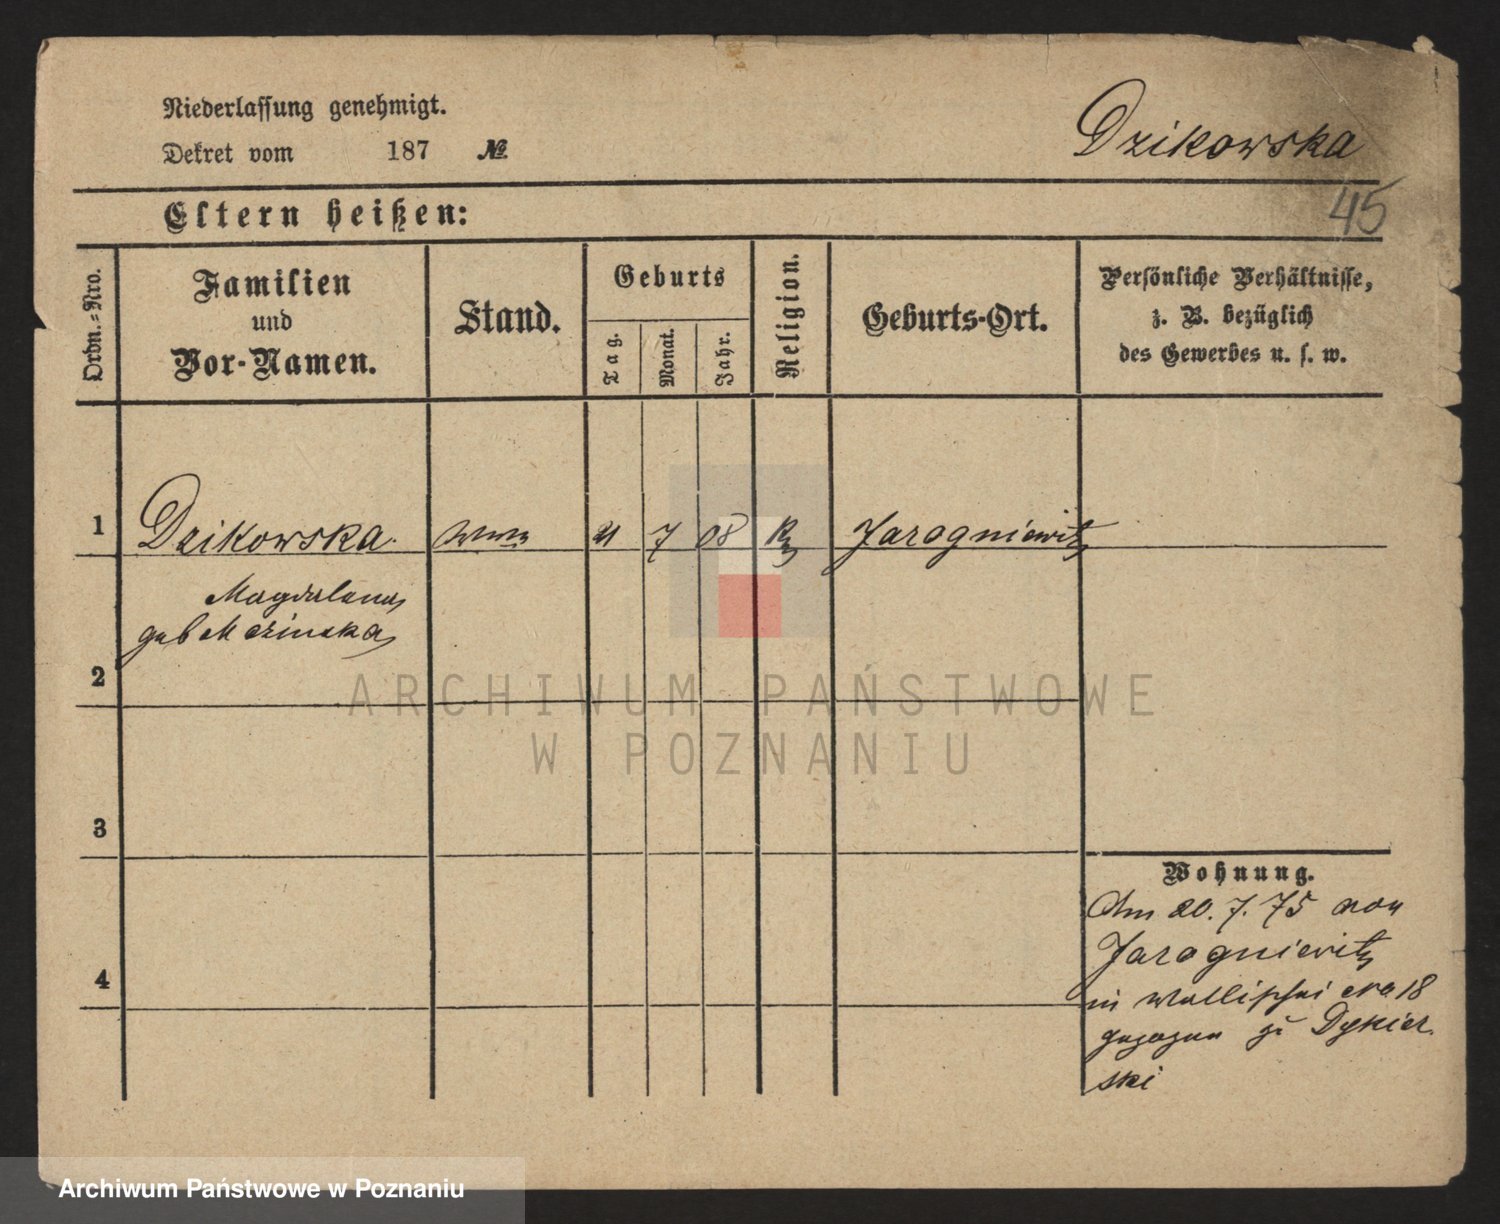 Niederlassung genehmigt.
Dekret vom 187 №
Dzikowska
45
Eltern heißen:
Ordn.-Nro.
Familien
und
Vor-Namen.
Stand.
Geburts
Tag.
Monat.
Jahr.
Religion.
Geburts-Ort.
Persönliche Verhältnisse,
z. B. bezüglich
des Gewerbes u. s. w.
1 Dzikowska 21 7 08 Jarogniewitz
Magdalena
geb
2
3
4
Wohnung.
Am 20. 7. 75 von
Jarogniewitz
in Wallischei Nro. 18
gezogen zu Dykier
ski
ARCHIWUM PAŃSTWOWE
W POZNANIU
Archiwum Państwowe w Poznaniu